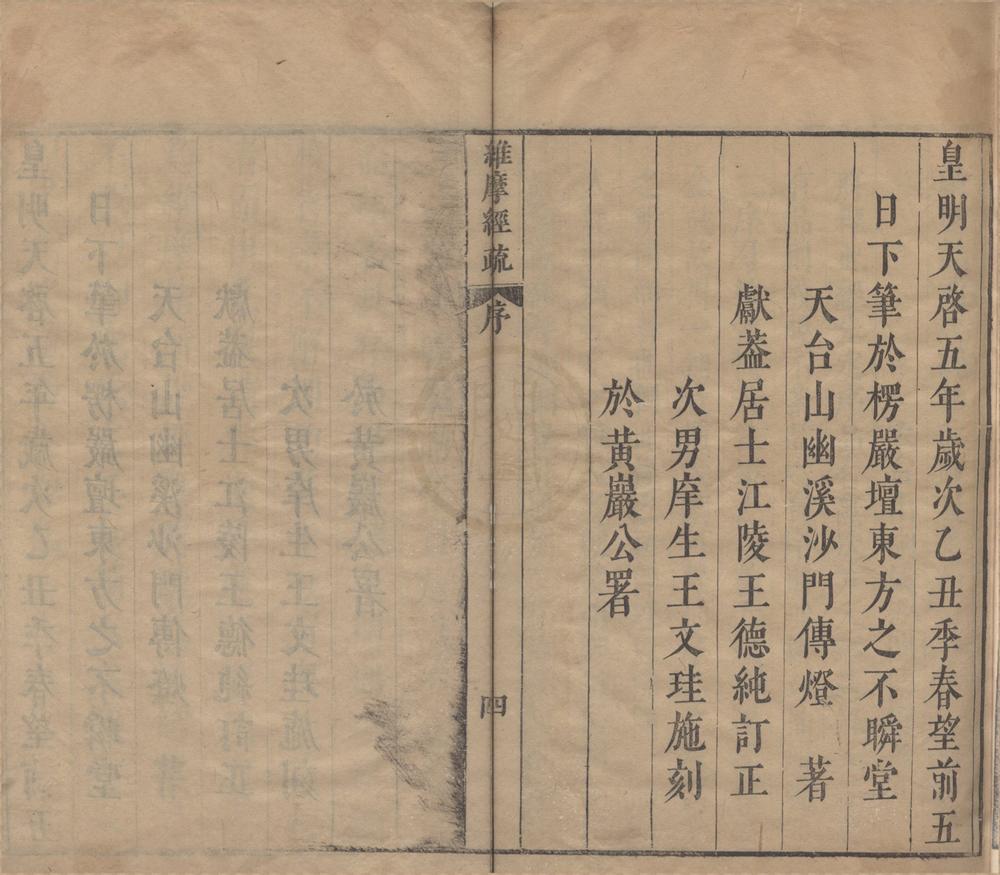 皇明天啓五年歲次乙丑季春望前五
日下筆於楞嚴壇東方之不瞬堂
天台山幽溪沙門傳燈　著
獻葢居士江陵王德純訂正
次男庠生王文珪施刻
於黃巖公署
維摩經疏　序　四